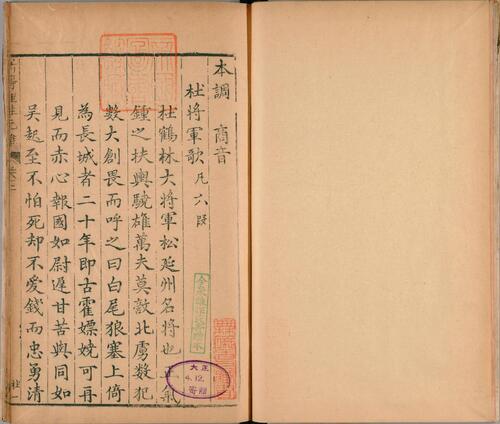 本調 商音
杜將軍歌 凡六段
杜鶴林大將軍松延州名將也正氣
鍾之扶輿驍雄萬夫莫敵北虜數犯
數大創畏而呼之曰白尾狼塞上倚
為長城者二十年即古霍嫖姚可再
見而赤心報國如尉遲甘苦與同如
吳起至不怕死却不愛錢而忠勇清
卷三
杜一
大正
4.12.
寄贈